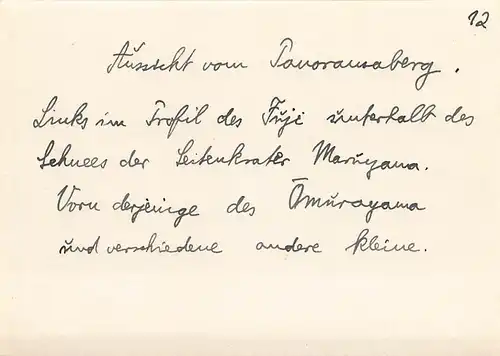 12
Aussicht vom Panoramaberg.
Links im Profil des Fuji unterhalb des
Schnees der Seitenkrater Maruyama.
Vorn derjenige des Ōmurayama
und verschiedene andere kleine.